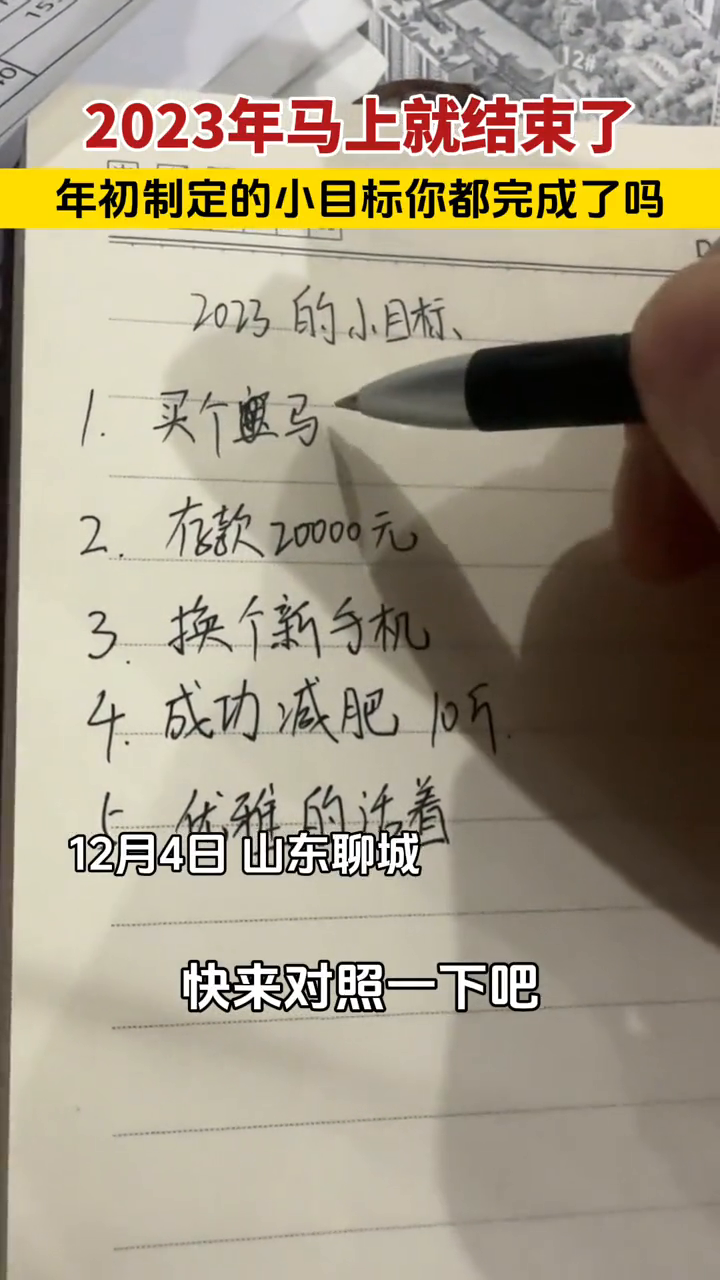 12#
2023年马上就结束了
年初制定的小目标你都完成了吗
2023的小目标、
1. 买个马
2. 存款20000元
3. 换个新手机
4. 成功减肥 10斤.
5 优雅的活着
12月4日 山东聊城
快来对照一下吧